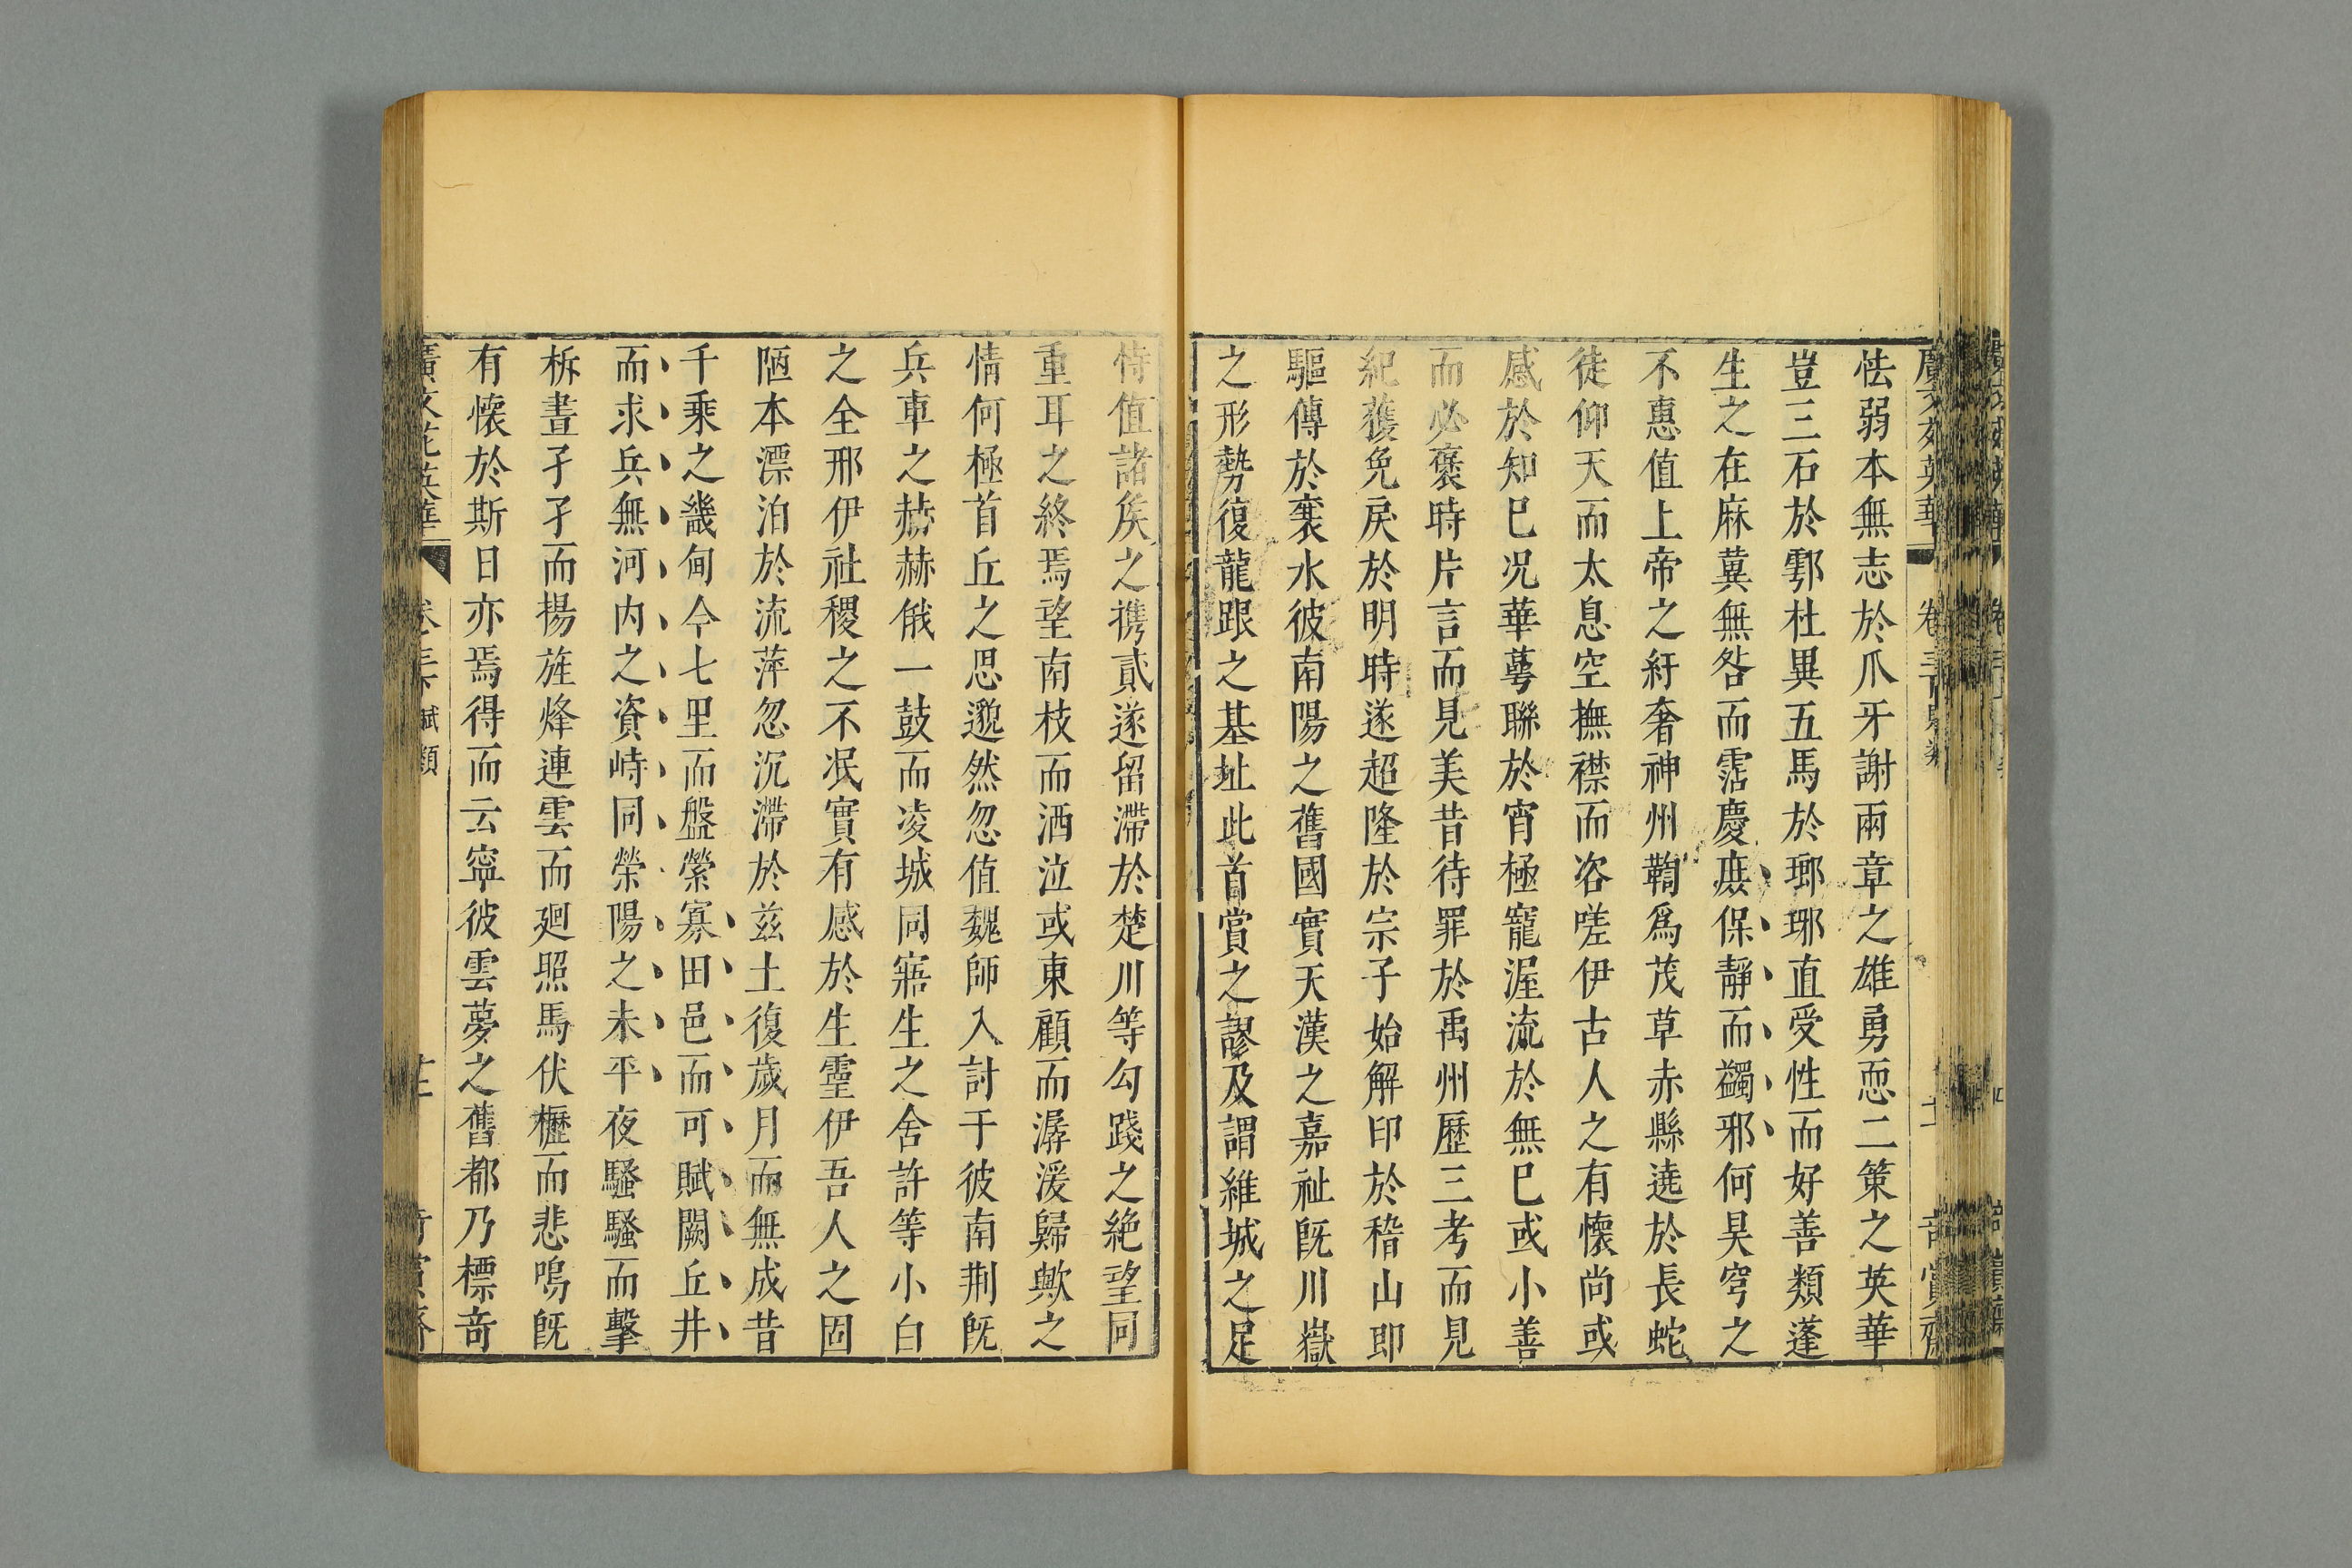 怯弱本無志於爪牙謝兩章之雄勇恧二策之英華
豈三石於鄠杜異五馬於瑯琊直受性而好善類蓬
生之在麻冀無咎而霑慶庶保靜而蠲邪何昊穹之
不惠值上帝之紆奢神州鞫爲茂草赤縣遶於長蛇
徒仰天而太息空撫襟而咨嗟伊古人之有懷尚或
感於知巳况華蕚聯於宵極寵渥流於無巳或小善
而必褒時片言而見美昔待罪於禹州歷三考而見
紀獲免戾於明時遂超隆於宗子始解印於稽山即
驅傳於襄水彼南陽之舊國實天漢之嘉祉旣川嶽
之形勢復龍跟之基址此首賞之謬及謂維城之足
恃值諸矦之携貳遂留滯於楚川等勾踐之絶望同
重耳之終焉望南枝而洒泣或東顧而潺湲歸歟之
情何極首丘之思邈然忽值魏師入討于彼南荆旣
兵車之赫赫俄一鼓而凌城同寤生之舍許等小白
之全邢伊社稷之不泯實有感於生靈伊吾人之固
陋本漂泊於流萍忽沉滯於兹土復歲月而無成昔
千乘之畿甸今七里而盤縈寡田邑而可賦闕丘井
而求兵無河内之資峙同榮陽之未平夜騷騷而擊
柝晝孑孑而揚旌烽連雲而廻照馬伏櫪而悲鳴旣
有懷於斯日亦焉得而云寧彼雲夢之舊都乃標竒